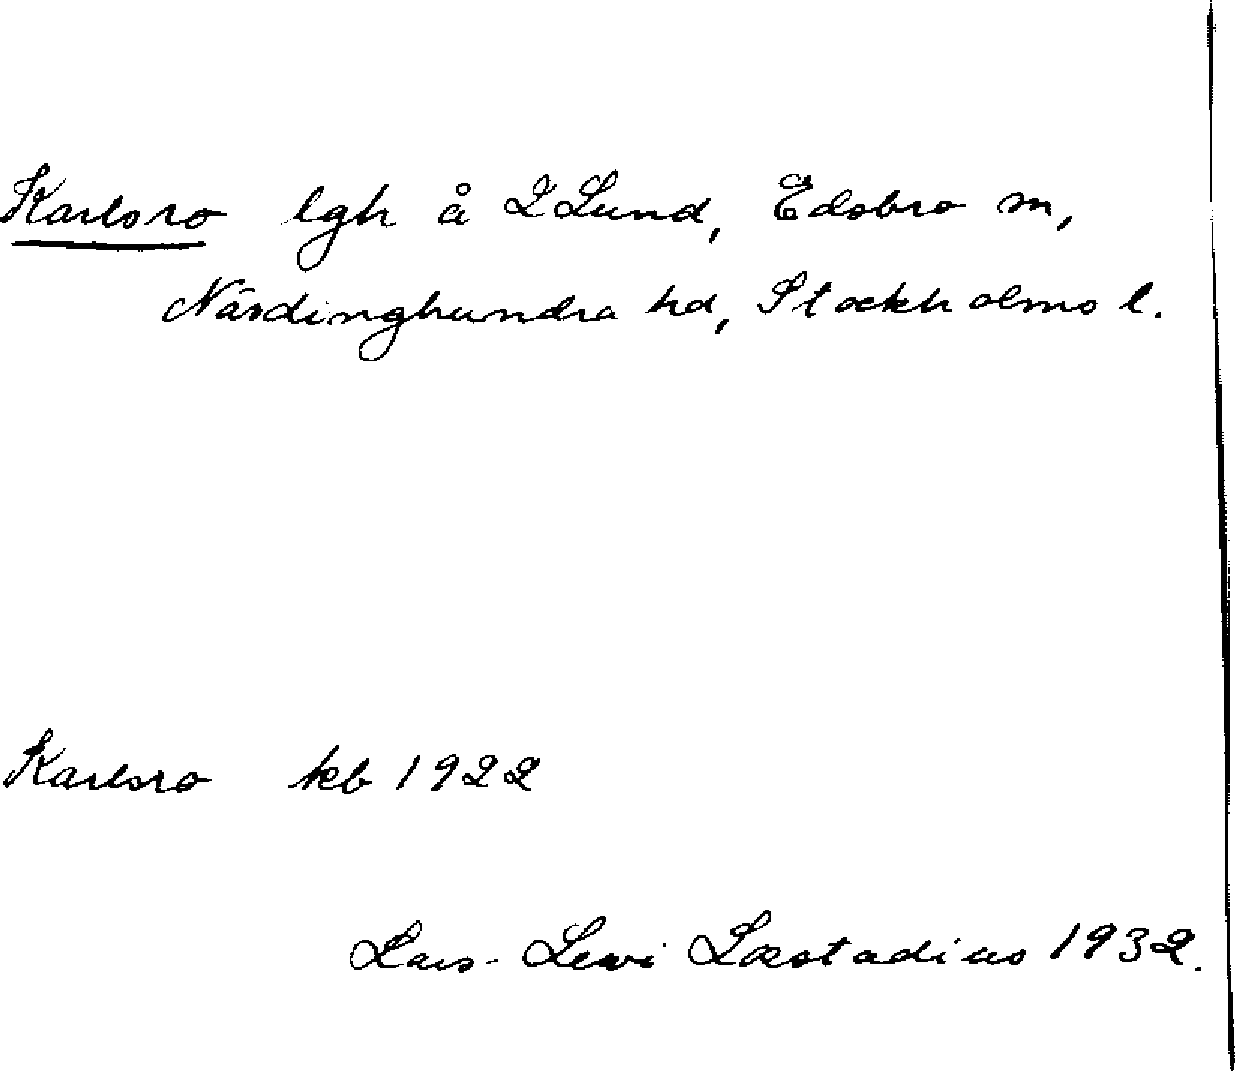 Karlsro lgh å 2 Lund, Edsbro sn,
Närdinghundra hd, Stockholms l.
Karlsro kb 1922
Lars-Levi Læstadius 1932.